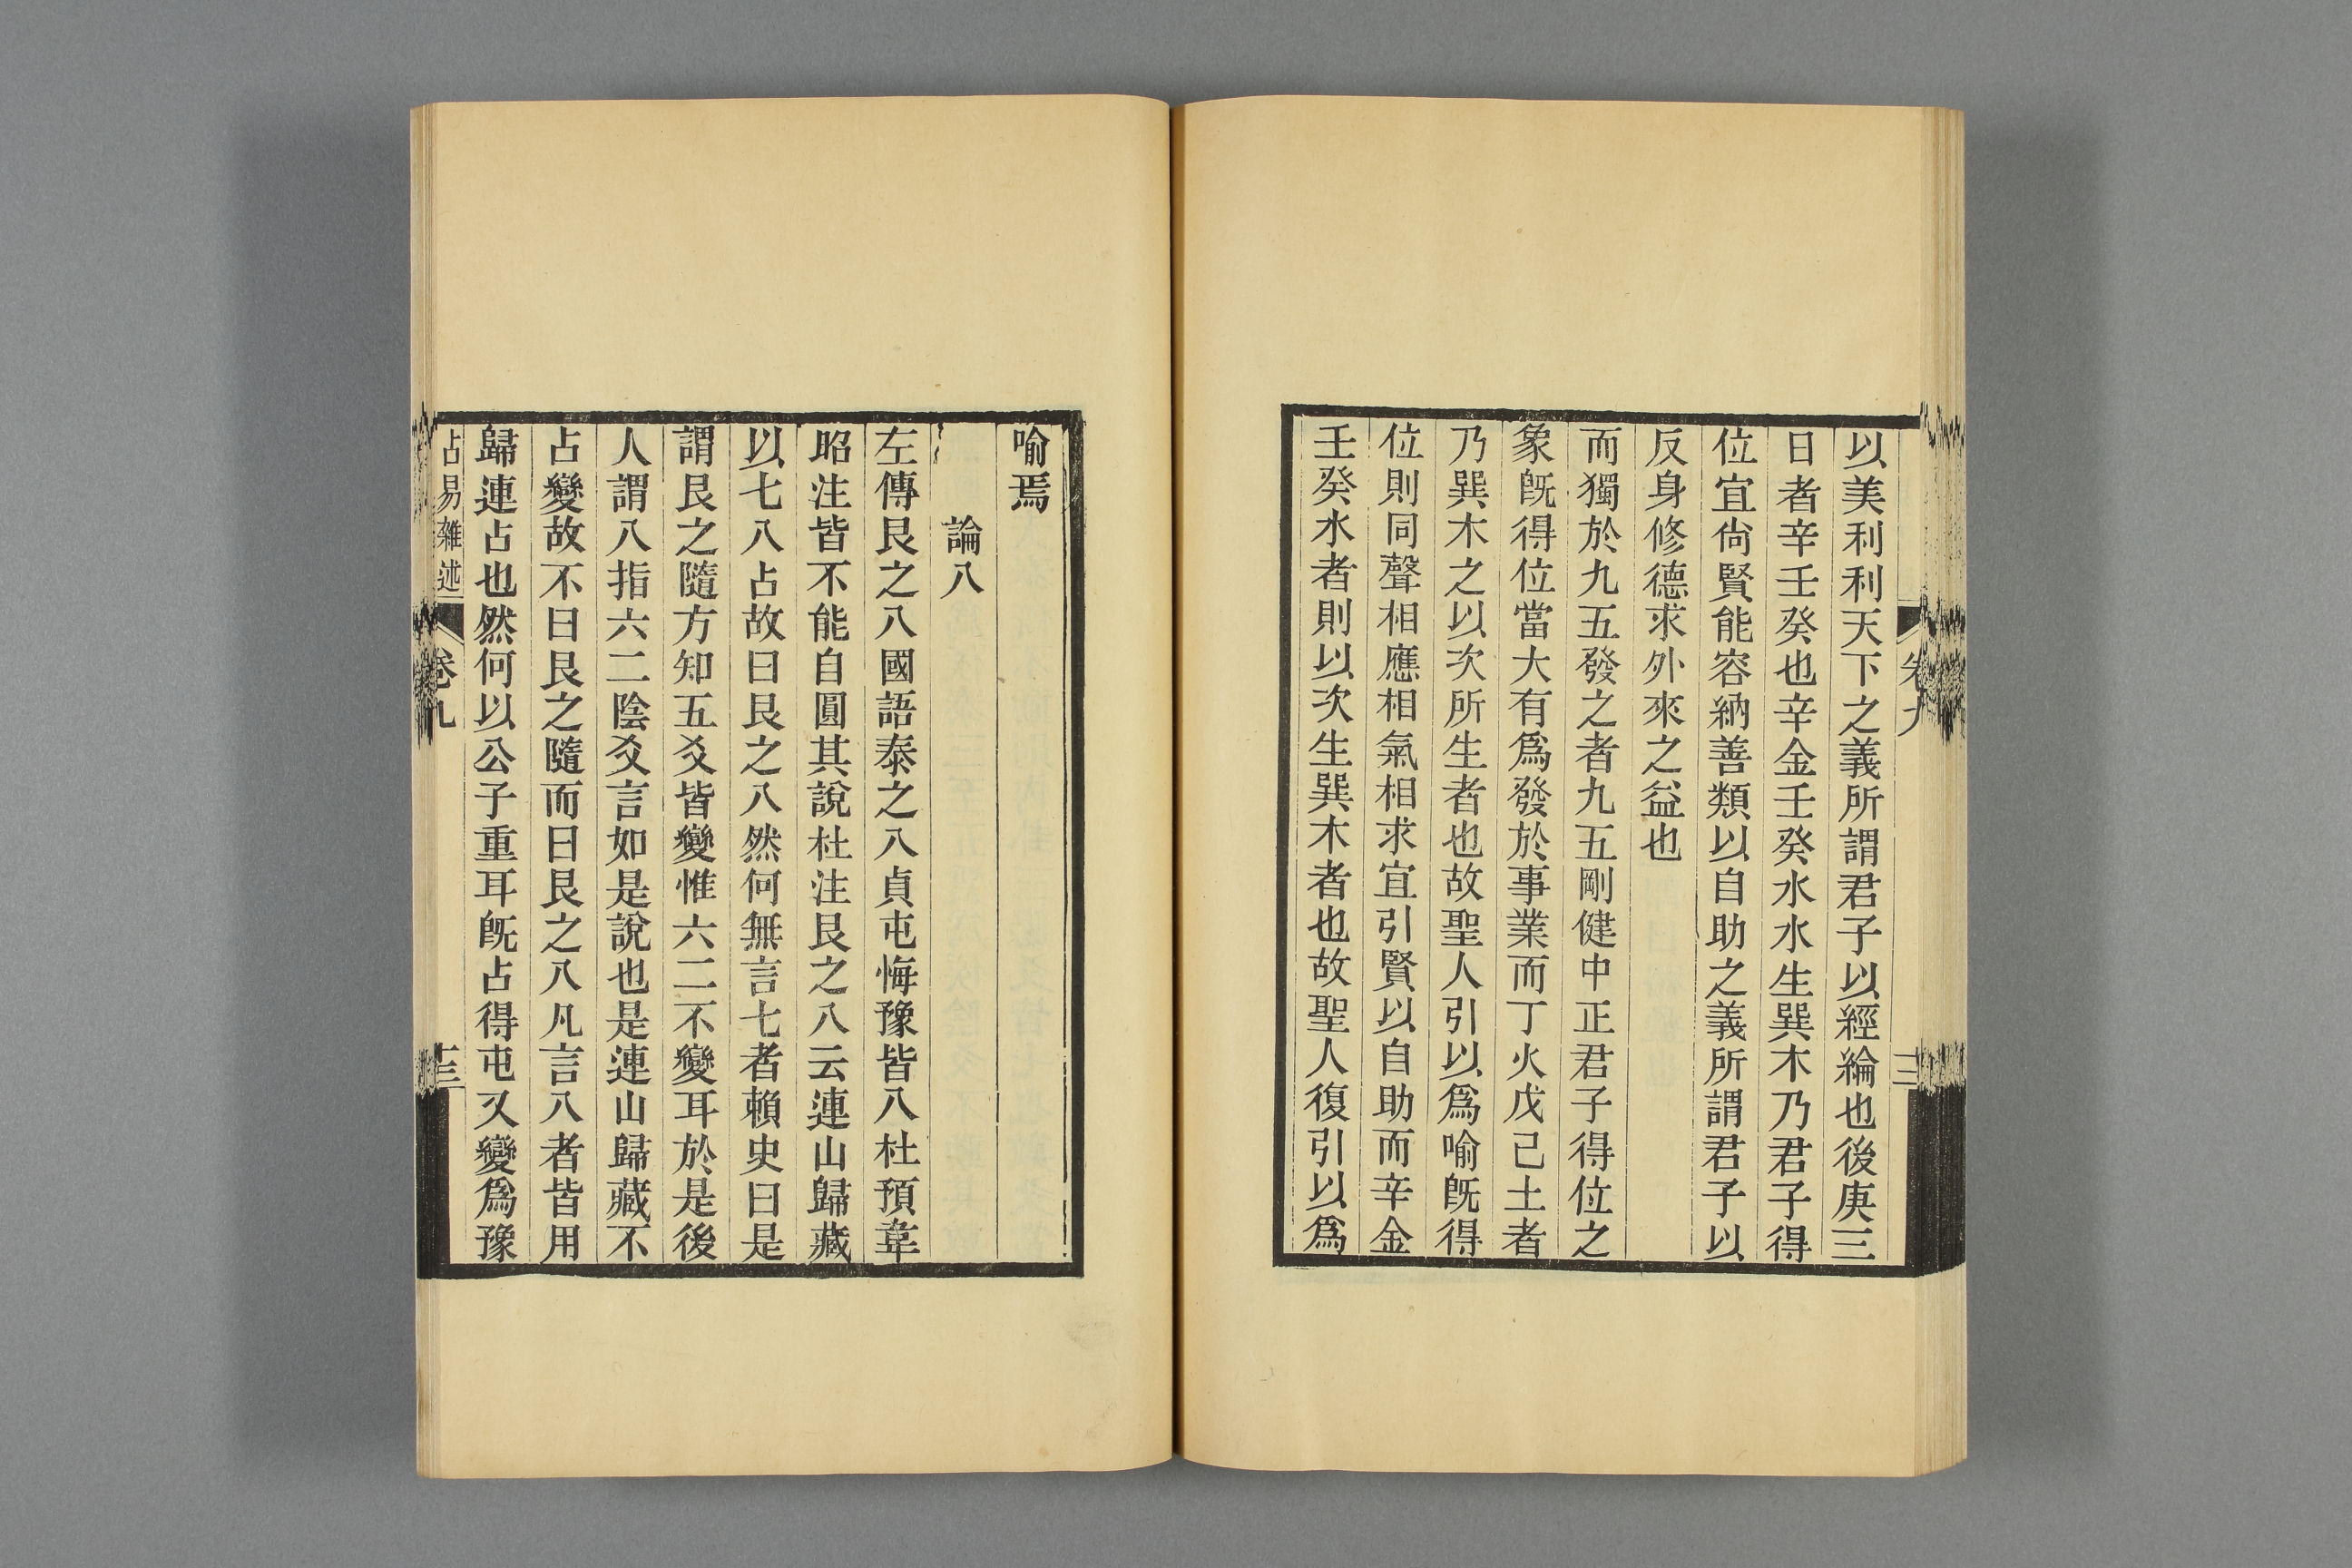 以美利利天下之義所謂君子以經綸也後庚三
日者辛壬癸也辛金壬癸水水生巽木乃君子得
位宜尙賢能容納善類以自助之義所謂君子以
反身修德求外來之益也
而獨於九五發之者九五剛健中正君子得位之
象旣得位當大有爲發於事業而丁火戊己土者
乃巽木之以次所生者也故聖人引以爲喻旣得
位則同聲相應相氣相求宜引賢以自助而辛金
壬癸水者則以次生巽木者也故聖人復引以爲
喻焉
論八
左傳艮之八國語泰之八貞屯悔豫皆八杜預韋
昭注皆不能自圓其說杜注艮之八云連山歸藏
以七八占故曰艮之八然何無言七者賴史曰是
謂艮之隨方知五爻皆變惟六二不變耳於是後
人謂八指六二陰爻言如是說也是連山歸藏不
占變故不曰艮之隨而曰艮之八凡言八者皆用
歸連占也然何以公子重耳旣占得屯又變爲豫
占易雜述
卷九